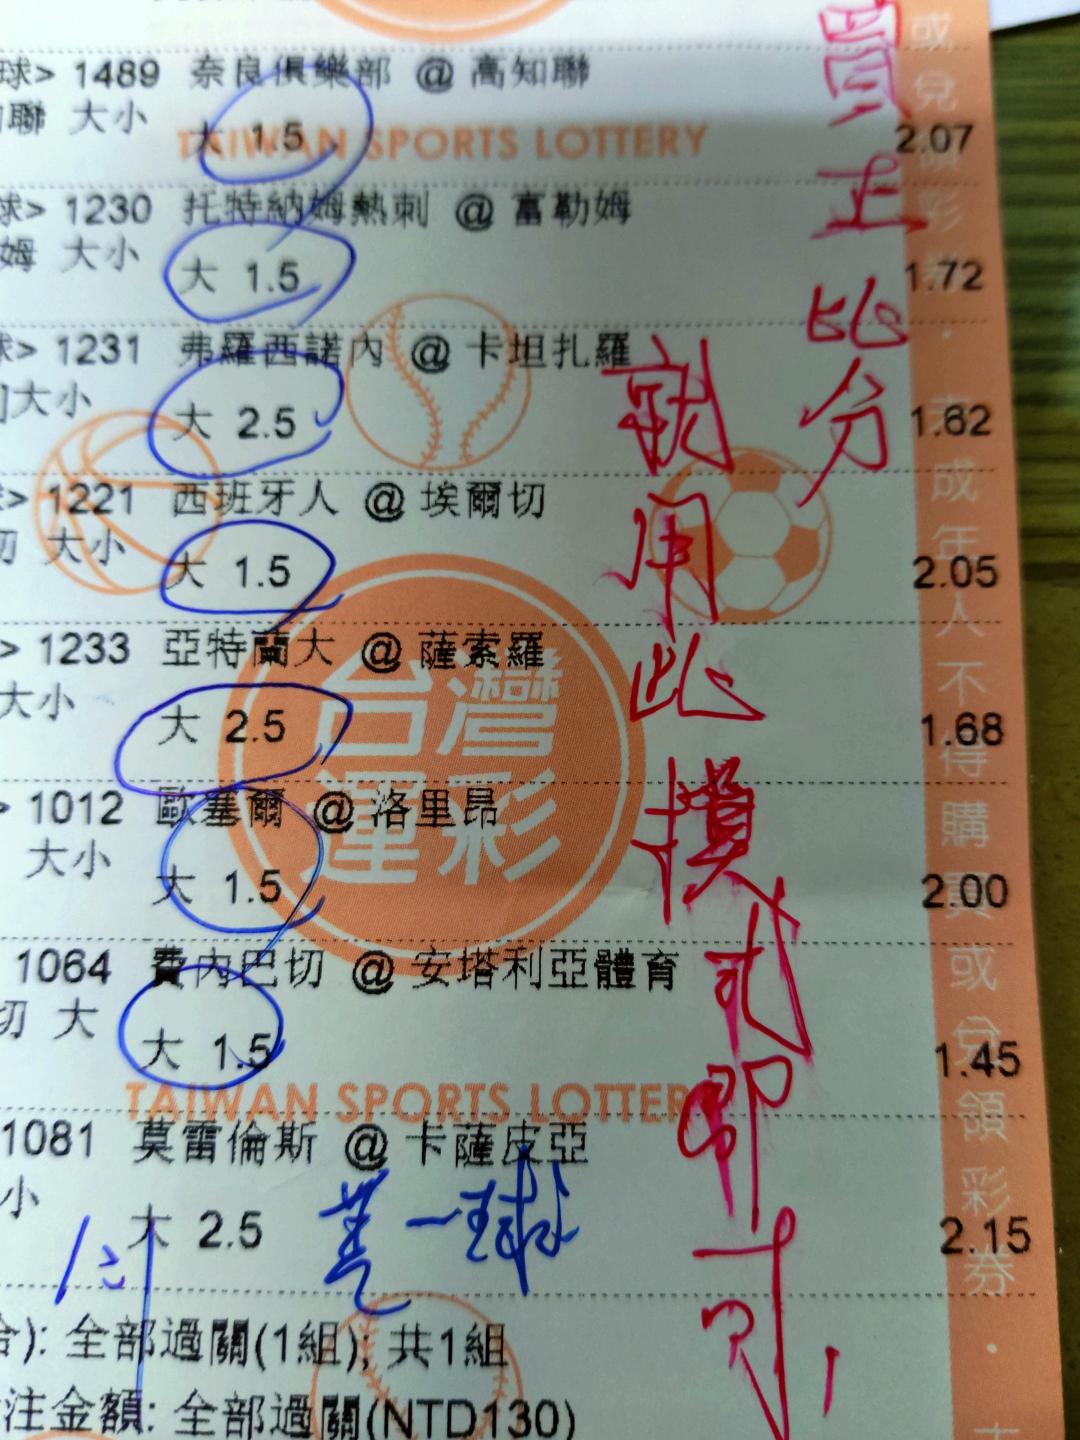 球> 1489 奈良俱樂部 @ 高知聯
聯 大小 大 1.5 2.07
TAIWAN SPORTS LOTTERY
球> 1230 托特納姆熱刺 @ 富勒姆
姆 大小 大 1.5 1.72
> 1231 弗羅西諾內 @ 卡坦扎羅
大小 大 2.5 1.62
> 1221 西班牙人 @ 埃爾切
切 大小 大 1.5 2.05
> 1233 亞特蘭大 @ 薩索羅
大小 大 2.5 1.68
> 1012 歐塞爾 @ 洛里昂
大小 大 1.5 2.00
1064 費內巴切 @ 安塔利亞體育
切 大 大 1.5 1.45
TAIWAN SPORTS LOTTER
1081 莫雷倫斯 @ 卡薩皮亞
小 大 2.5 2.15
差一球
): 全部過關(1組); 共1組
注金額: 全部過關(NTD130)
台灣
運彩
買正比分
就用此模式即可!
成年人不得購買或分領彩券·